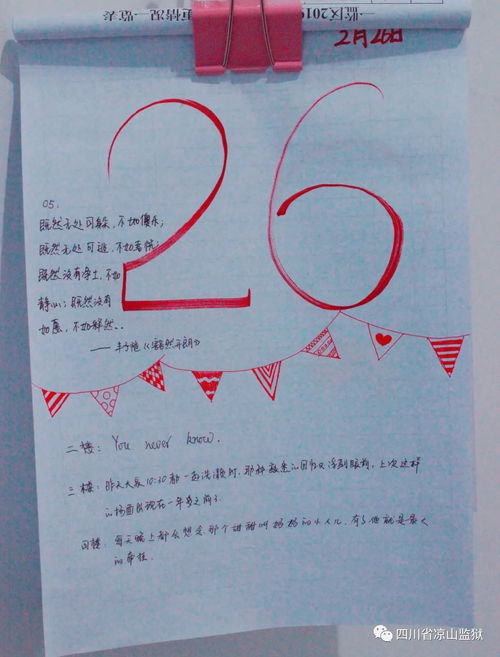 一监区2019 更情况一览表
2月26日
26
05:
既然无处可躲，不如傻乐；
既然无处可逃，不如喜悦；
既然没有净土，不如
静心；既然没有
如愿，不如释然..
——丰子恺《豁然开朗》
二楼：You never know.
三楼：昨天大家10:30都一起洗漱时，那种熟悉的回忆又浮到眼前，上次这样
的场面出现在一年多之前了
四楼：每天晚上都会想念那个甜甜叫妈妈的小人儿，有了他就是最大
的牵挂。
四川省凉山监狱